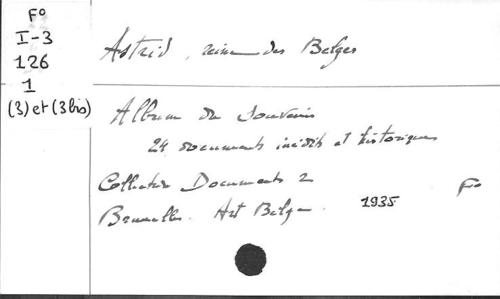 Fº
I-3
126
1
(3) et (3 bis)
Astrid, reine des Belges
Album du Souvenir
24 documents inédits et historiques
Collection Documents 2
Bruxelles. Art Belge. 1935 Fº